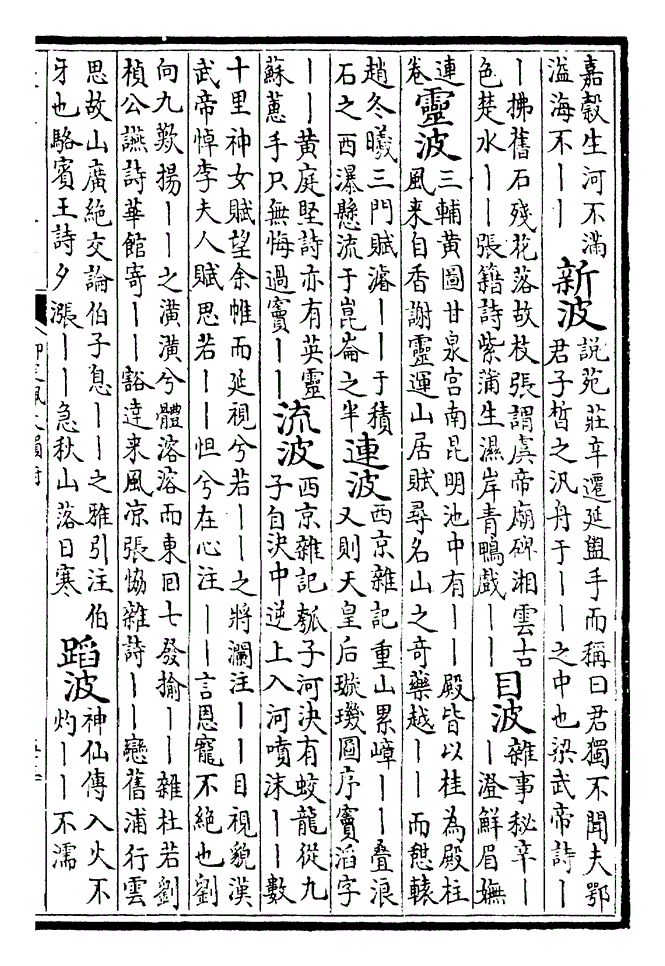 嘉穀生河不滿
溢海不丨丨
新波
説苑莊辛遷延盥手而稱曰君獨不聞夫鄂
君子晳之汎舟于丨丨之中也梁武帝詩丨
丨拂舊石殘花落故枝張謂虞帝廟碑湘雲古
色楚水丨丨張籍詩紫蒲生濕岸青鴨戲丨丨
目波
雜事秘辛丨
丨澄鮮眉嫵
連
卷
靈波
三輔黄圖甘泉宮南昆明池中有丨丨殿皆以桂為殿柱
風来自香謝靈運山居賦尋名山之奇藥越丨丨而憇轅
趙冬曦三門賦濬丨丨于積
石之西瀑懸流于崑崙之半
連波
西京雜記重山累嶂丨丨疊浪
又則天皇后璇璣圖序竇滔字
丨丨黄庭堅詩亦有英靈
蘇蕙手只無悔過竇丨丨
流波
西京雜記瓠子河決有蛟龍從九
子自決中逆上入河噴沫丨丨數
十里神女賦望余帷而延視兮若丨丨之將瀾注丨丨目視貌漢
武帝悼李夫人賦思若丨丨怛兮在心注丨丨言恩寵不絶也劉
向九歎揚丨丨之潢潢兮體溶溶而東囘七發揄丨丨雜杜若劉
楨公讌詩華館寄丨丨豁達来風凉張恊雜詩丨丨戀舊浦行雲
思故山廣絶交論伯子息丨丨之雅引注伯
牙也駱賓王詩夕漲丨丨急秋山落日寒
蹈波
神仙傳入火不
灼丨丨不濡